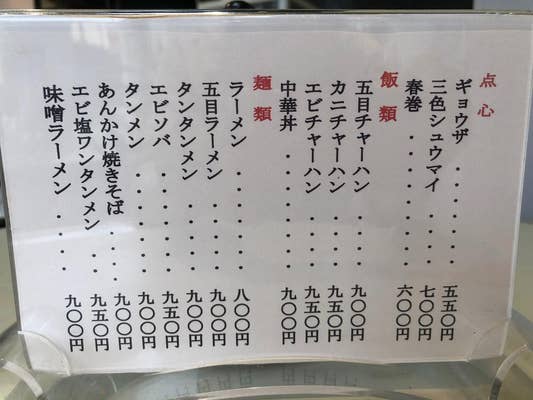 点心
ギョウザ・・・・・・・五五〇円
三色シュウマイ・・・・七〇〇円
春巻・・・・・・・・・六〇〇円
飯類
五目チャーハン・・・・九〇〇円
カニチャーハン・・・・九五〇円
エビチャーハン・・・・九五〇円
中華丼・・・・・・・・九〇〇円
麺類
ラーメン・・・・・・・八〇〇円
五目ラーメン・・・・・九〇〇円
タンタンメン・・・・・九〇〇円
エビソバ・・・・・・・九五〇円
タンメン・・・・・・・九〇〇円
あんかけ焼きそば・・・九〇〇円
エビ塩ワンタンメン・・九五〇円
味噌ラーメン・・・・・九〇〇円